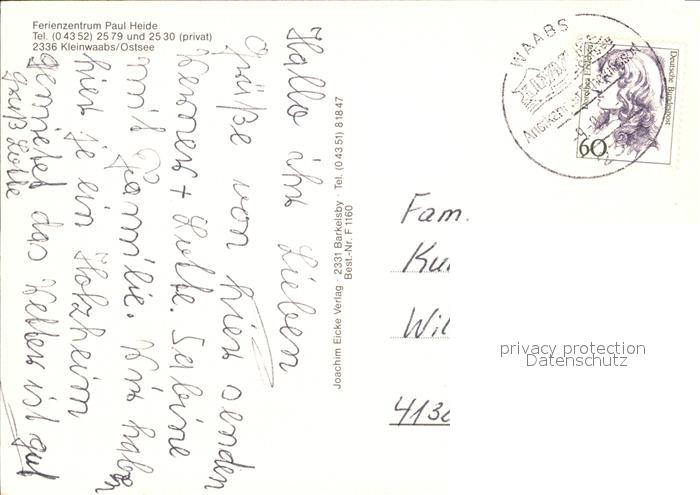 Ferienzentrum Paul Heide
Tel. (0 43 52) 25 79 und 25 30 (privat)
2336 Kleinwaabs/Ostsee
Hallo ihr Lieben
Grüße von hier senden
Werner + Lotte. Sabine
mit Familie. Wir haben
hier je ein Holzheim
gemietet das Wetter ist gut
Gruß Lotte
Joachim Eicke Verlag · 2331 Barkelsby · Tel. (0 43 51) 8 18 47
Best.-Nr. F 1160
WAABS
Deutsche Bundespost
60
Fam.
Ku
Wil
413
privacy protection
Datenschutz